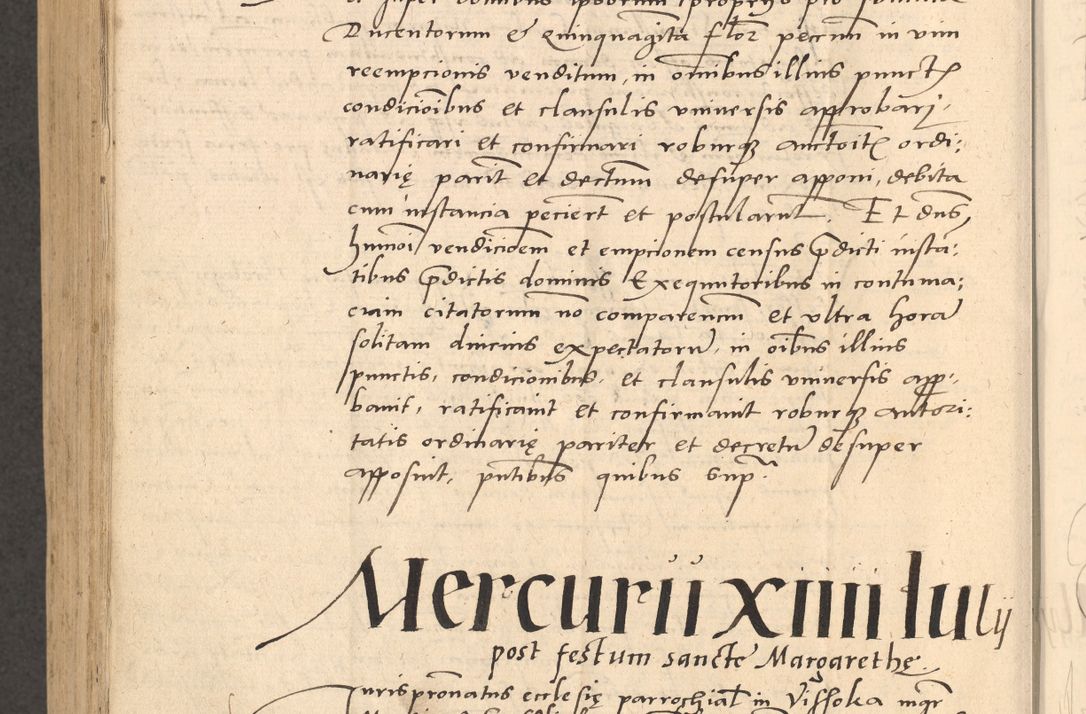 Ducentorum & Quinquagita flor peccun in vim
reempcionis venditum, in omibus illius punctis
condicioibus et clausulis vniversis approbari,
ratificari et confirmari roburq3 auctoitis ordi:
narię parit et dectum desuper apponi, debita
cum instancia peciert et postularut. Et dns
humoi vendicioem et empcionem census pdicti insta:
tibus pdictis dominis Exequutoribus in contuma:
ciam citatorum no comparencium et vltra hora
solitam diucius expectatoru, in oibus illius
punctis, condicionibus, et clausulis vniversis app:
bauit, ratificauit et confirmauit roburq3 autori:
tatis ordinarię pariter et decretu desuper
apposuit, pntibus quibus sup.
Mercurii xiiii Iulij
post festum sancte Margarethę.
Iurispronatus ecclesię parrochial in Vissoka mgr